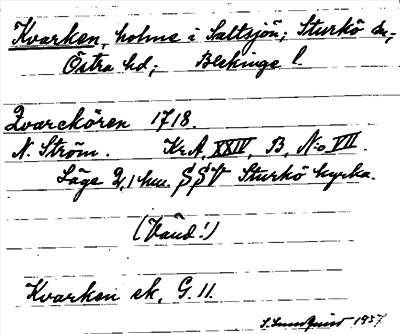 Kvarken, holme i Saltsjön; Sturkö sn;
Östra hd; Blekinge l.
Qvarckören 1718.
N. Ström. KrA, XXIV, B, N:o VII.
Läge 2,1 km. SSV Sturkö kyrka.
(Vänd!)
Kvarken ek. G. 11.
S. Sundquist 1937